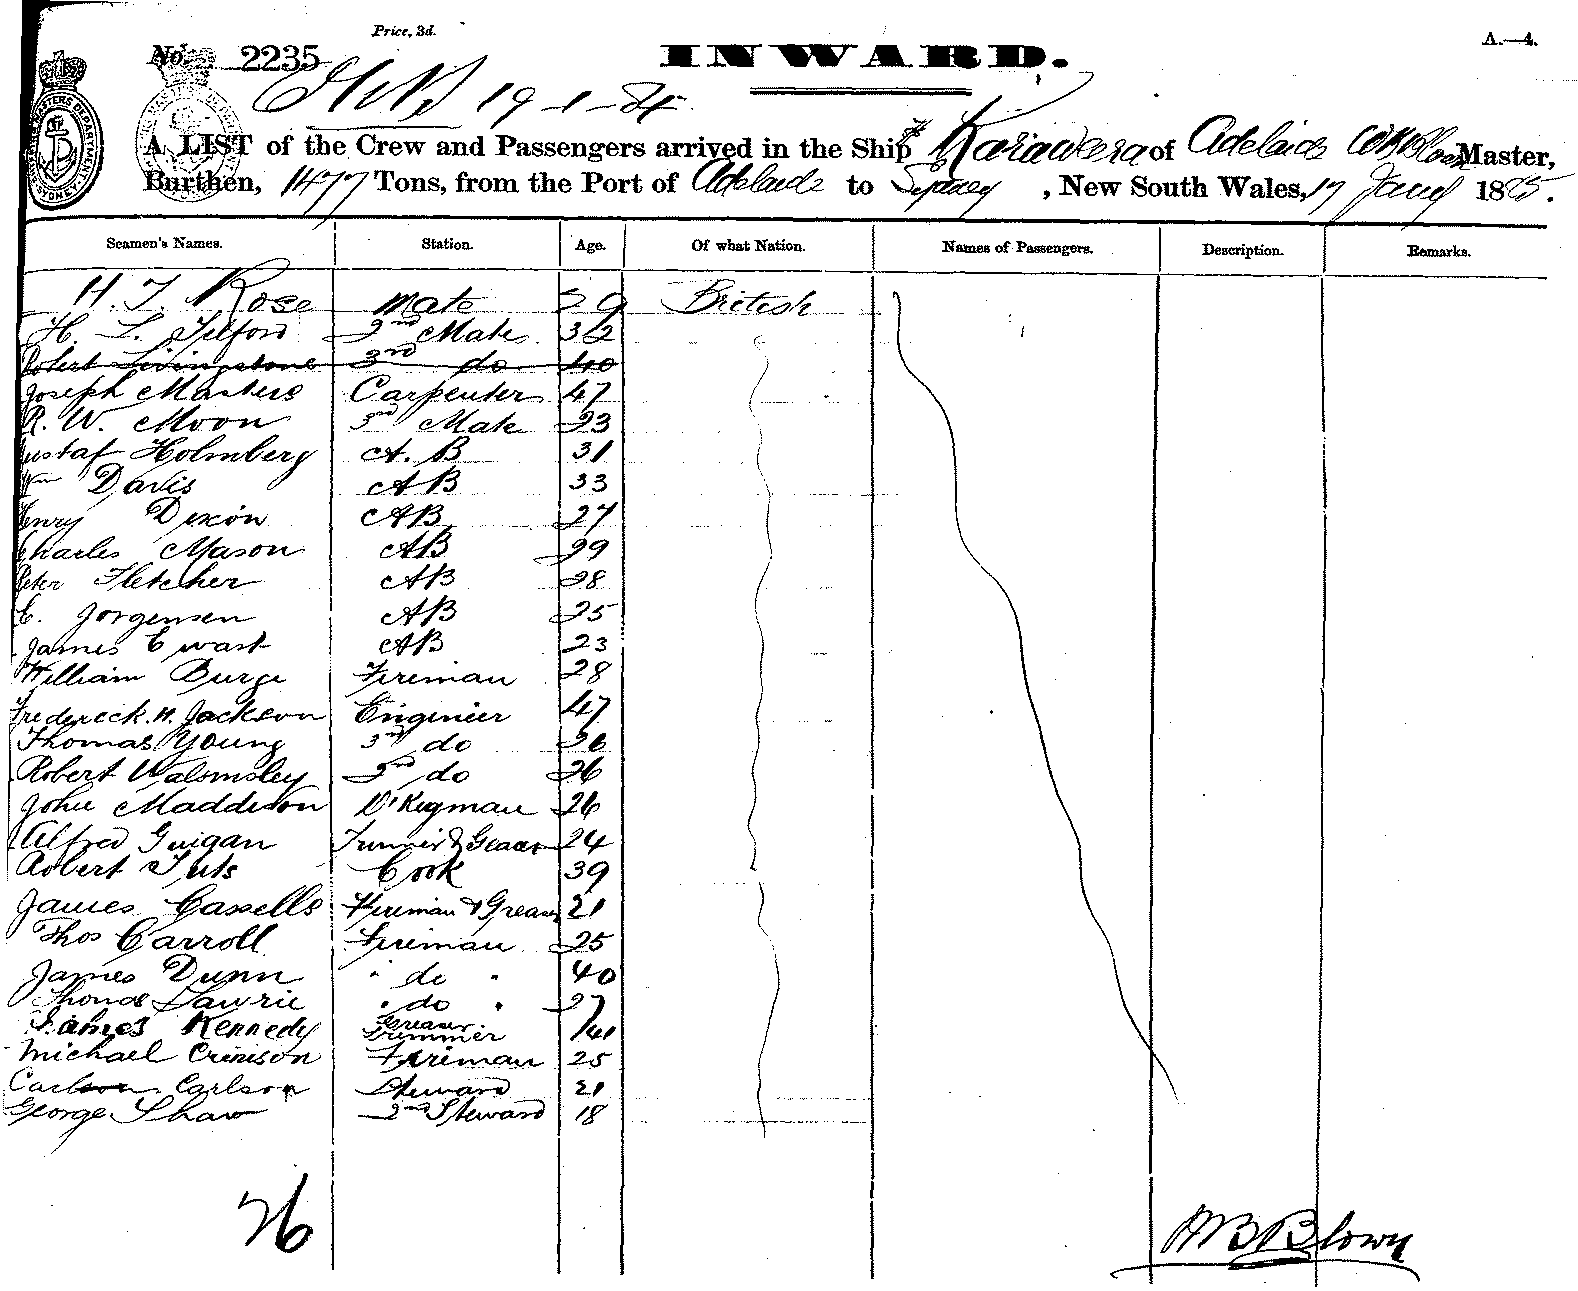 Price, 3d.
A.—4.
No. 2235
INWARD.
19-1-
A LIST of the Crew and Passengers arrived in the Ship Karaweera of Adelaide Master,
Burthen, 1477 Tons, from the Port of Adelaide to Sydney, New South Wales, 17 Jany 1885.
Seamen's Names. Station. Age. Of what Nation. Names of Passengers. Description. Remarks.
H. J. Rose mate 29 British
H. L. Telford 2nd Mate 32
Robert Livingstone 3rd do 40
Joseph Masters Carpenter 47
R. W. Moon 3rd Mate 23
Gustaf Holmberg A. B 31
Wm Davis AB 33
Henry Dixon AB 27
Charles Mason AB 29
Peter Fletcher AB 28
C. Jorgensen AB 25
James Ewart AB 23
William Burge Fireman 28
Frederick. H. Jackson Engineer 47
Thomas Young 3rd do 26
Robert Walsmsley 2nd do 26
John Maddison D'Keyman 26
Alfred Guigan 24
Robert Cook 39
James Cassells Fireman & Greaser 21
Thos Carroll Fireman 25
James Dunn " do " 40
Thomas Lawrie " do " 27
James Kennedy Greaser Trimmer 41
Michael Crimison Fireman 25
Carlson Carlson Steward 21
George Shaw 2nd Steward 18
26